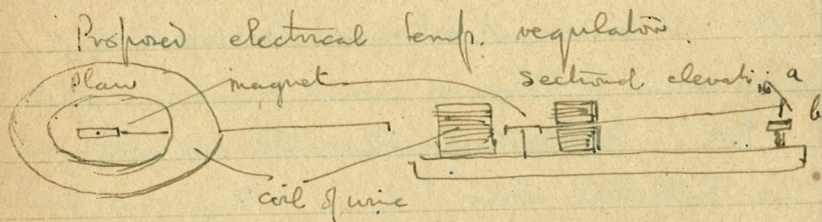 Proposed electrical temp. regulator.
Plan magnet sectional elevati. a
b
coil of wire